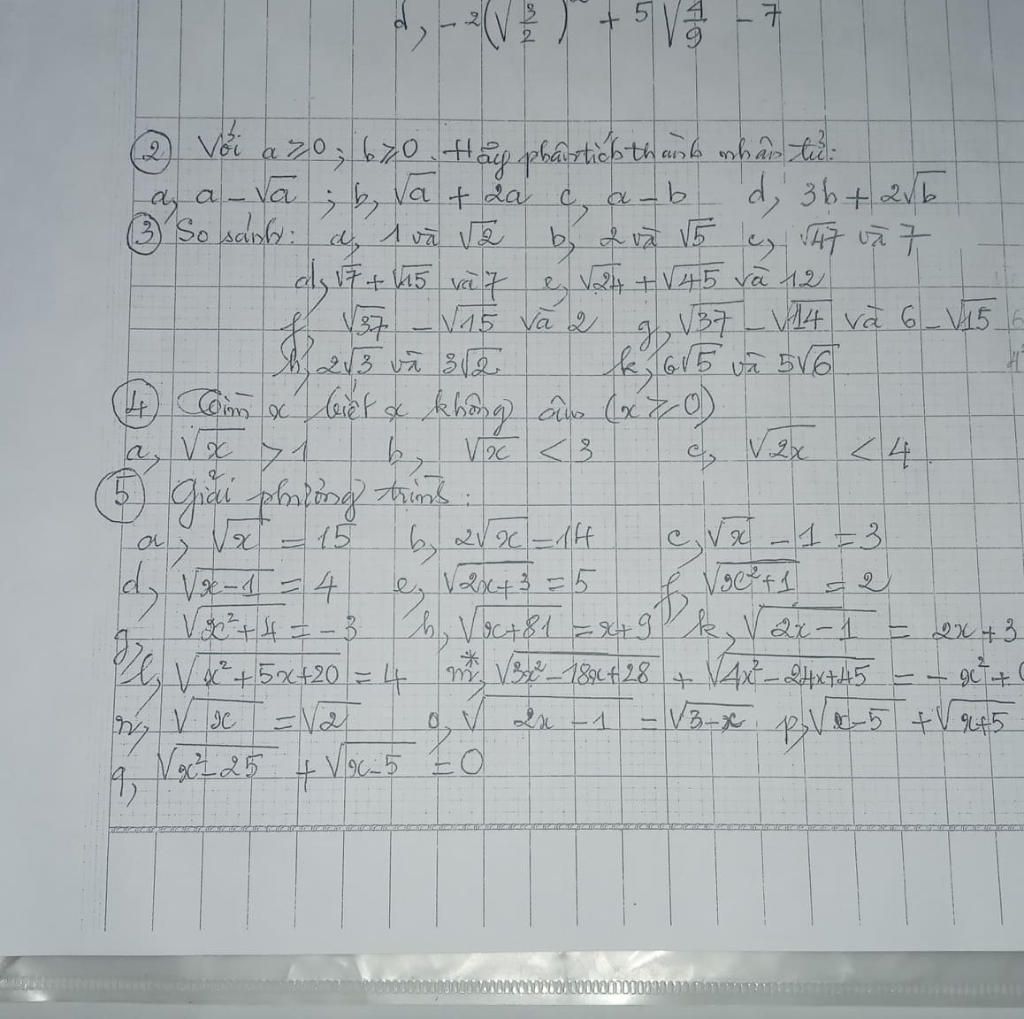 d, -2(√3/2)² + 5√4/9 - 7
② Với a ≥ 0; b ≥ 0. Hãy phân tích thành nhân tử:
a, a - √a ; b, √a + 2a c, a - b d, 3b + 2√b
③ So sánh: a, 1 và √2 b, 2 và √5 c, √47 và 7
d, √7 + √15 và 7 e, √24 + √45 và 12
f, √37 - √15 và 2 g, √37 - √14 và 6 - √15
h, 2√3 và 3√2 k, 6√5 và 5√6
④ Tìm x biết x không âm (x ≥ 0)
a, √x > 1 b, √x < 3 c, √2x < 4
⑤ Giải phương trình:
a, √x = 15 b, 2√x = 14 c, √x - 1 = 3
d, √x-1 = 4 e, √2x+3 = 5 f, √x²+1 = 2
g, √x²+4 = -3 h, √x+81 = x+9 k, √2x-1 = 2x+3
l, √x²+5x+20 = 4 m*, √3x²-18x+28 + √4x²-24x+45 = -x²+
n, √x = √2 o, √2x-1 = √3-x p, √x-5 + √x+5
q, √x²-25 + √x-5 = 0